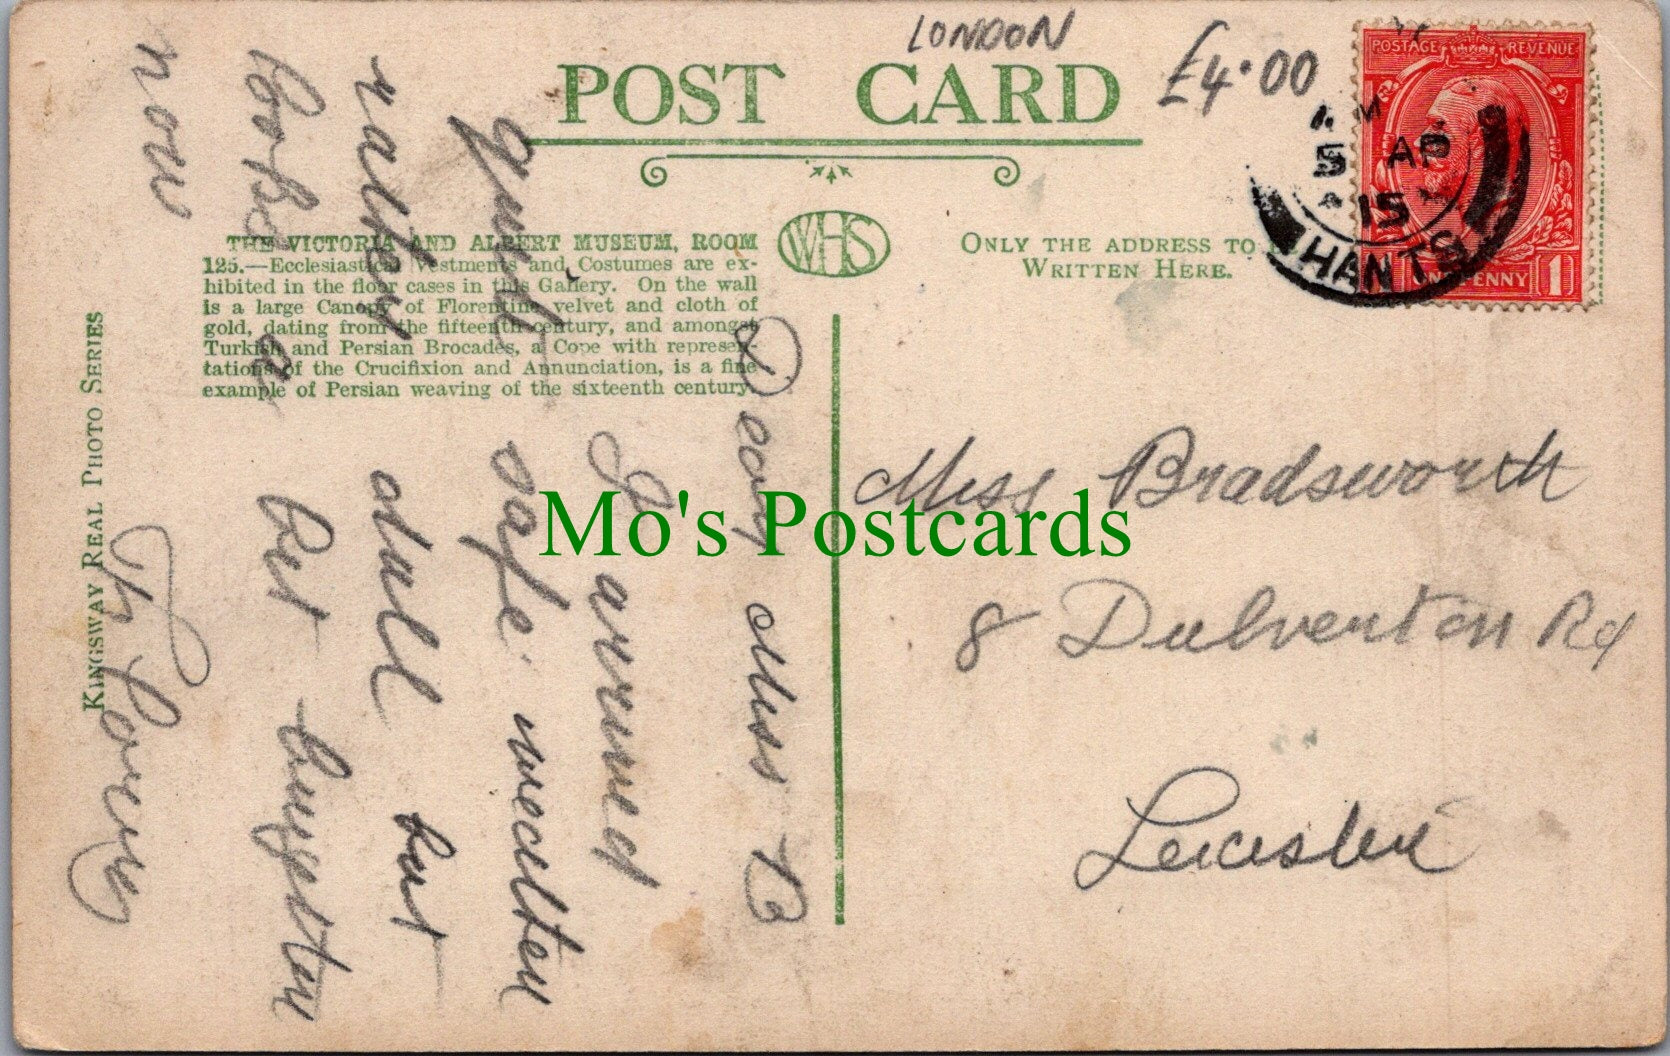 LONDON
£4.00
POST CARD
POSTAGE REVENUE
ONE PENNY 1
AM
5 AP
15
HANTS
THE VICTORIA AND ALBERT MUSEUM, ROOM
125.—Ecclesiastical Vestments and Costumes are ex-
hibited in the floor cases in this Gallery. On the wall
is a large Canopy of Florentine velvet and cloth of
gold, dating from the fifteenth century, and amongst
Turkish and Persian Brocades, a Cope with represen-
tations of the Crucifixion and Annunciation, is a fine
example of Persian weaving of the sixteenth century.
WHS
ONLY THE ADDRESS TO
WRITTEN HERE.
KINGSWAY REAL PHOTO SERIES
Dear Miss B
I arrived
quite safe weather
rather dull but
looks a bit brighter
now
Miss Bradsworth
8 Dulverton Rd
Leicester
Mo's Postcards